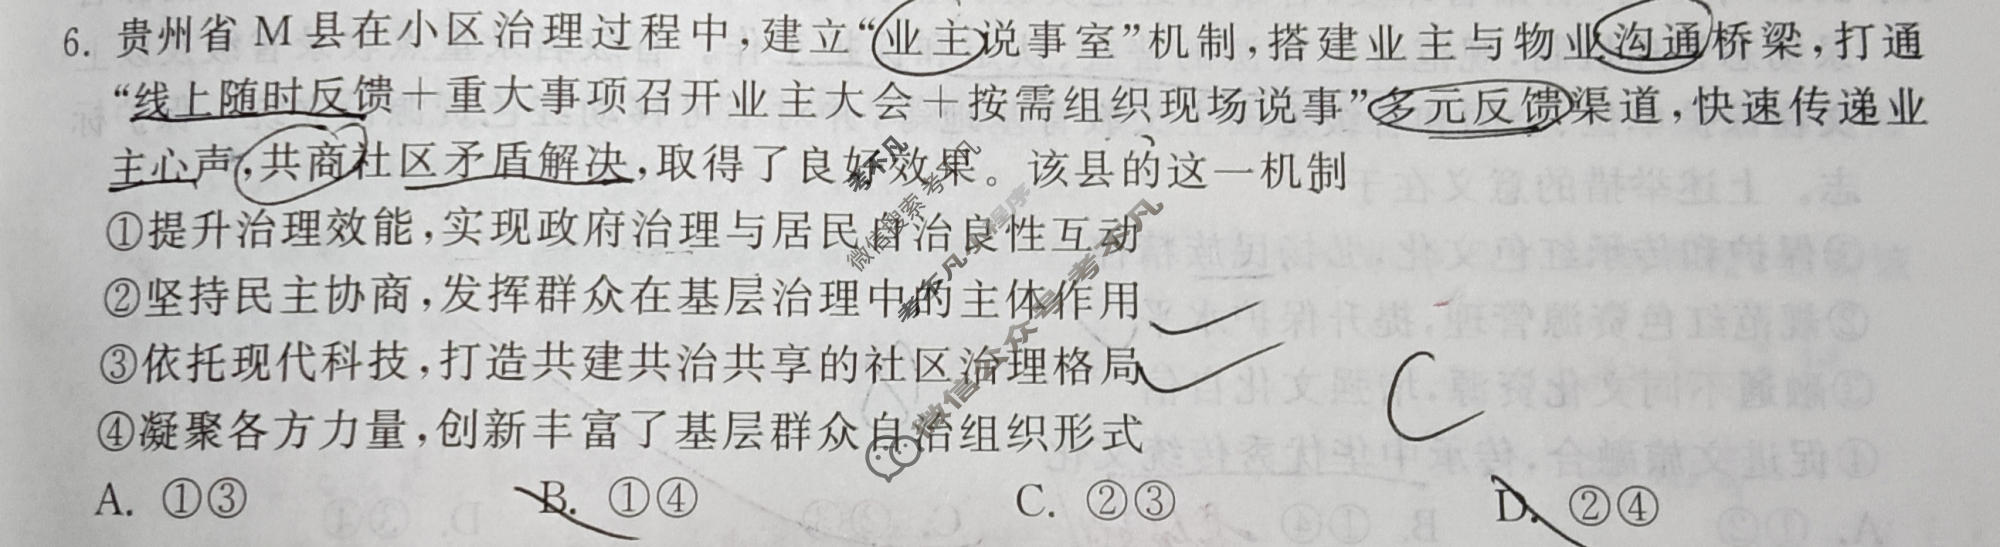 6. 贵州省M县在小区治理过程中,建立“业主说事室”机制,搭建业主与物业沟通桥梁,打通
“线上随时反馈+重大事项召开业主大会+按需组织现场说事”多元反馈渠道,快速传递业
主心声,共商社区矛盾解决,取得了良好效果。该县的这一机制
①提升治理效能,实现政府治理与居民自治良性互动
②坚持民主协商,发挥群众在基层治理中的主体作用
③依托现代科技,打造共建共治共享的社区治理格局
④凝聚各方力量,创新丰富了基层群众自治组织形式
A. ①③ B. ①④ C. ②③ D. ②④
C